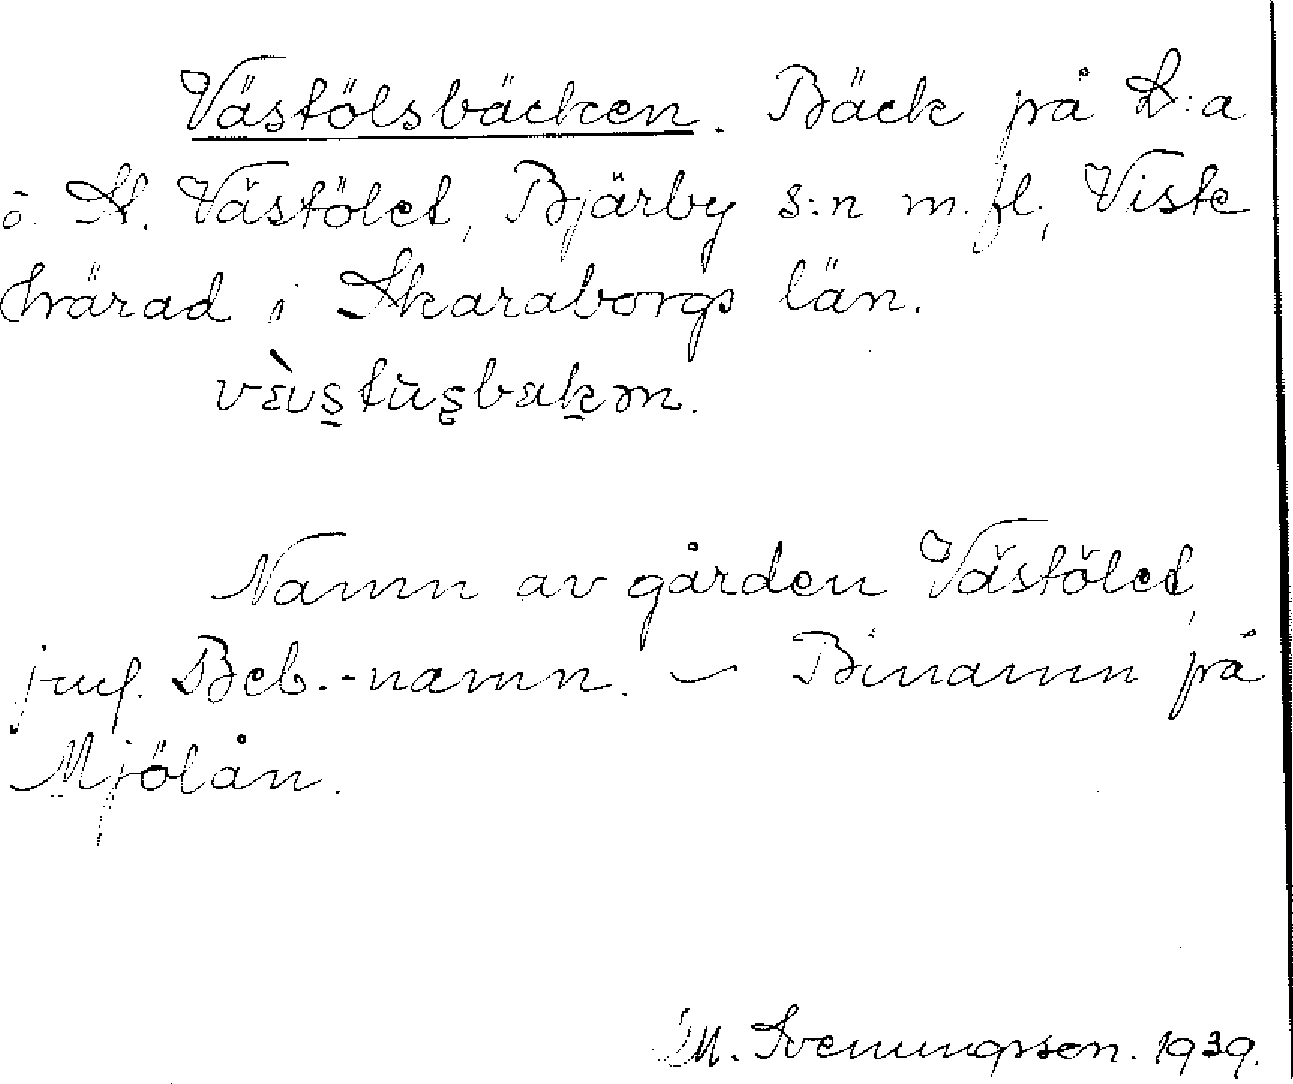 Västölsbäcken. Bäck på L:a
o. St. Västölet, Bjärby s:n m.fl., Viste
härad i Skaraborgs län.
Namn av gården Västölet,
jmf. Beb.-namn. – Binamn på
Mjölån.
M. Svenungsson. 1939.